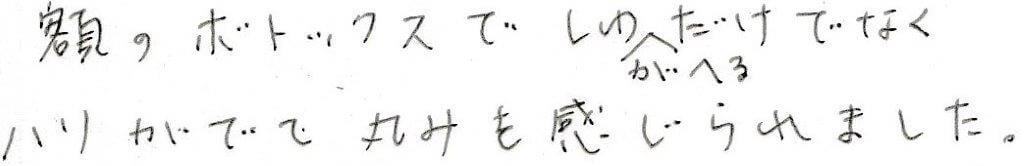 額のボトックスでしわがへるだけでなく
ハリがでて丸みを感じられました。